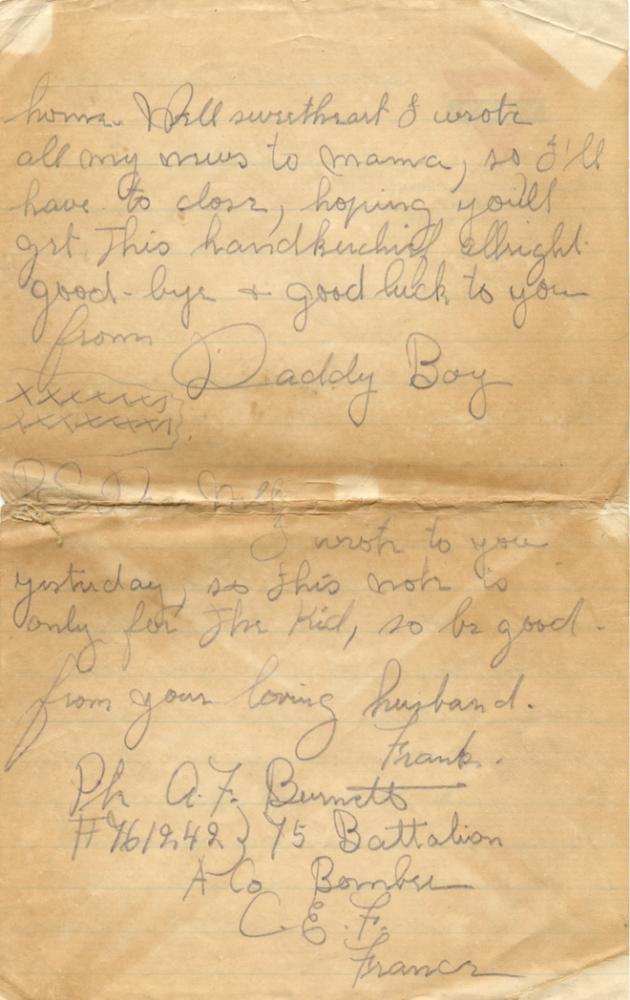 home. Well sweetheart I wrote
all my news to mama, so I'll
have to close, hoping you'll
get this handkerchief allright.
good-bye + good luck to you
from
Daddy Boy
xxxxxxx
xxxxxxx
P.S. Dear
I wrote to you
yesterday, so this note is
only for the Kid, so be good.
from your loving husband.
Frank.
Pte A.F. Burnett
#761242} 75 Battalion
A Co Bomber
C. E. F.
France